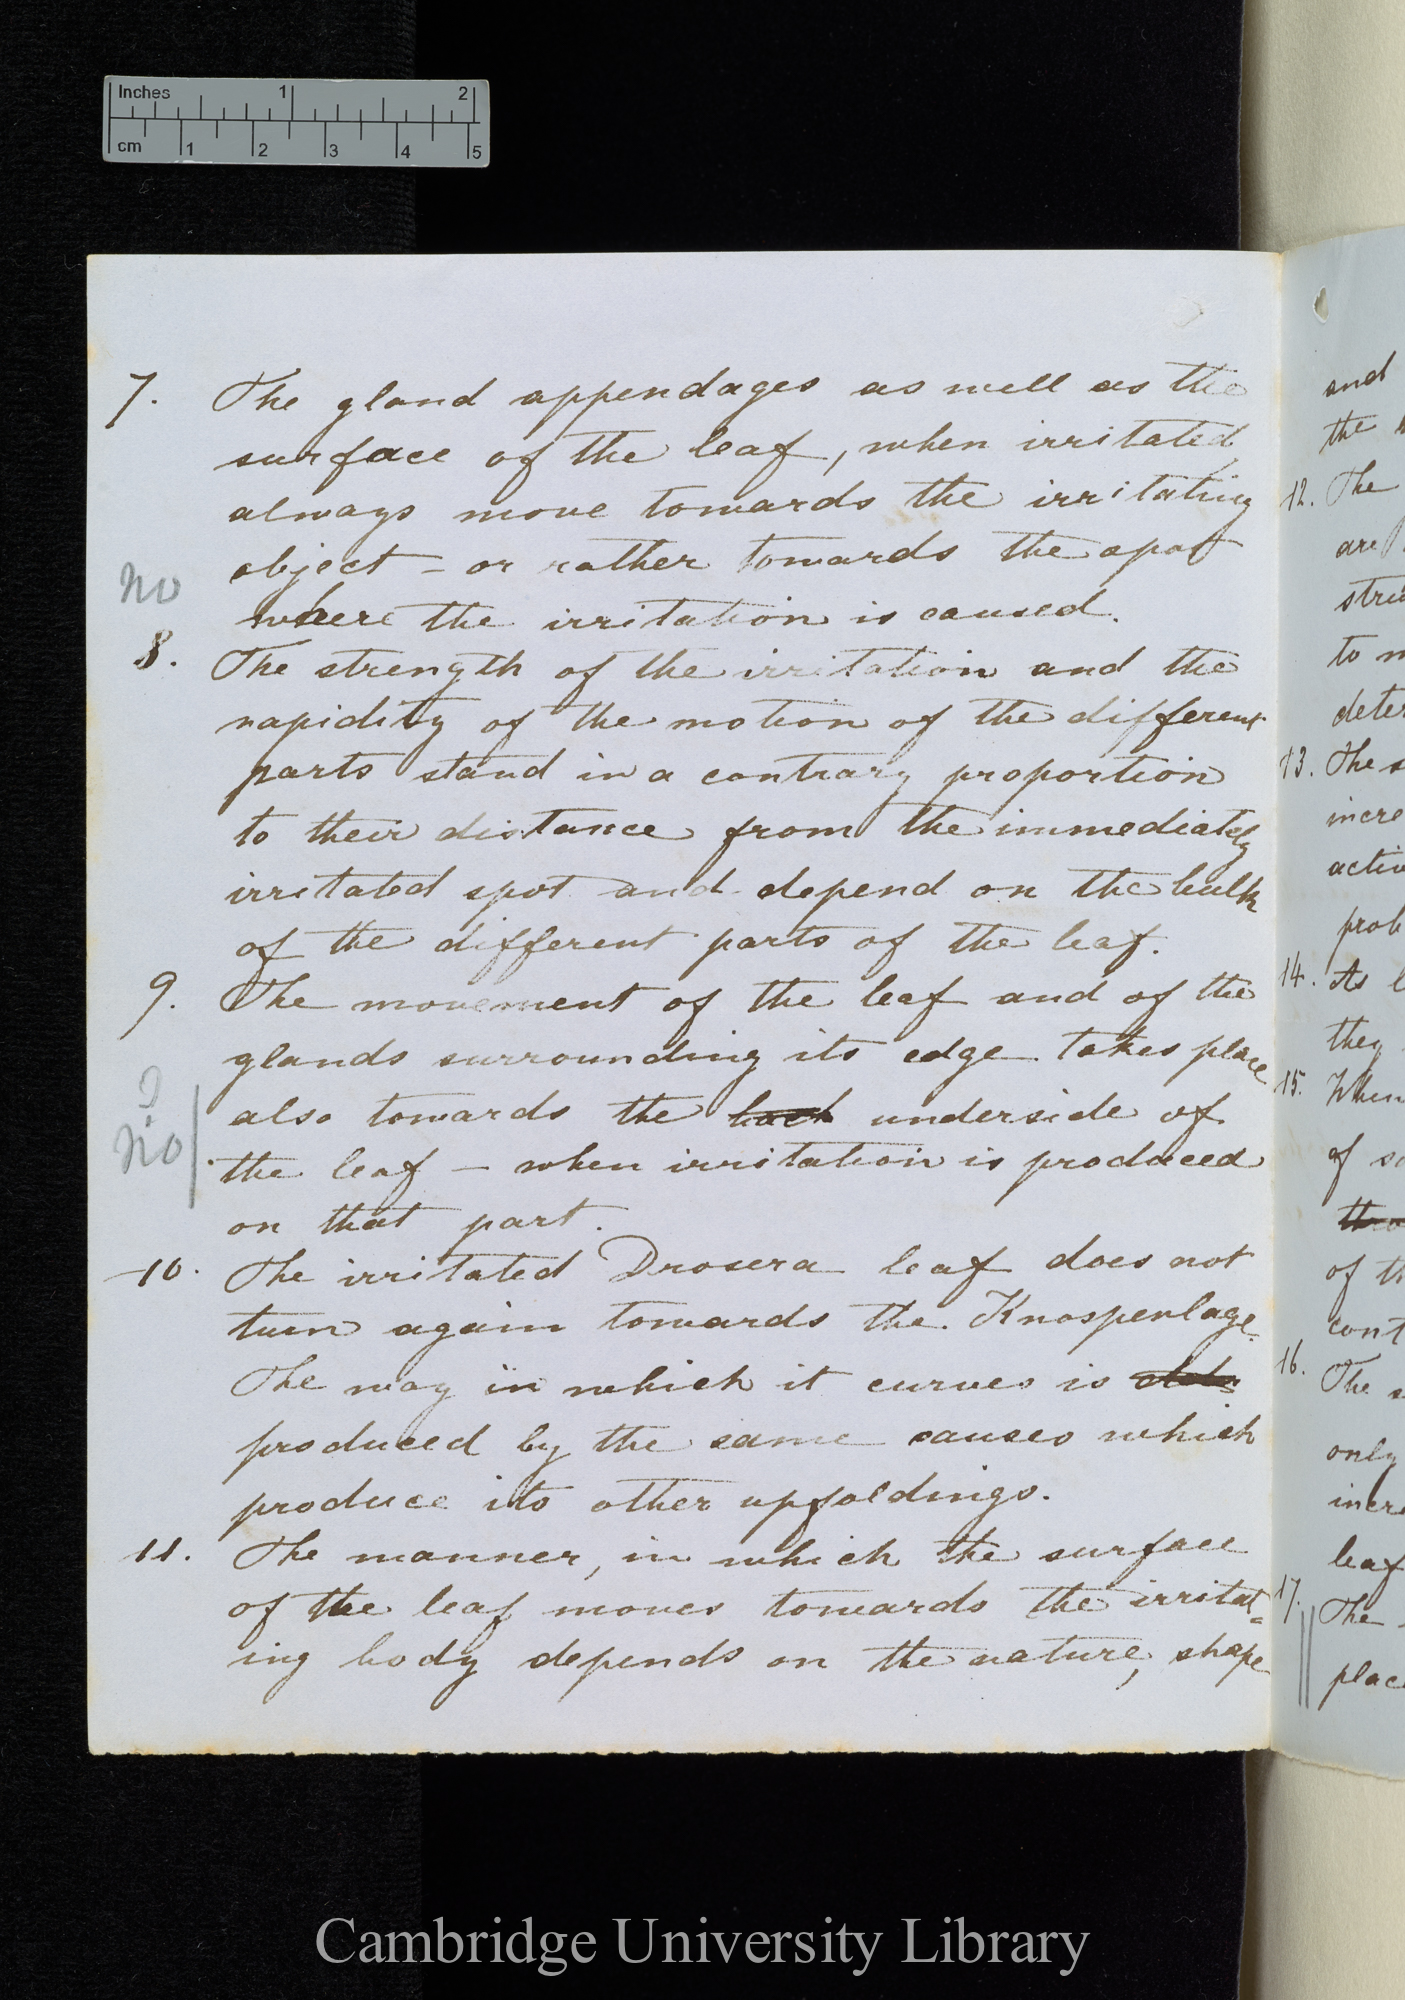 Inches 1 2
cm 1 2 3 4 5
7. The gland appendages as well as the
surface of the leaf, when irritated
always move towards the irritating
object – or rather towards the spot
no
where the irritation is caused.
8. The strength of the irritation and the
rapidity of the motion of the different
parts stand in a contrary proportion
to their distance from the immediately
irritated spot and depend on the bulk
of the different parts of the leaf.
9. The movement of the leaf and of the
glands surrounding its edge takes place
?
also towards the back underside of
no
the leaf – when irritation is produced
on that part.
10. The irritated Drosera leaf does not
turn again towards the Knospenlage.
The way in which it curves is
produced by the same causes which
produce its other upfoldings.
11. The manner, in which the surface
of the leaf moves towards the irritat=
ing body depends on the nature, shape
and
the
12. The
are
to
13. The
14. As
they
15. When
of
of
16. The
only
leaf
17. The
Cambridge University Library